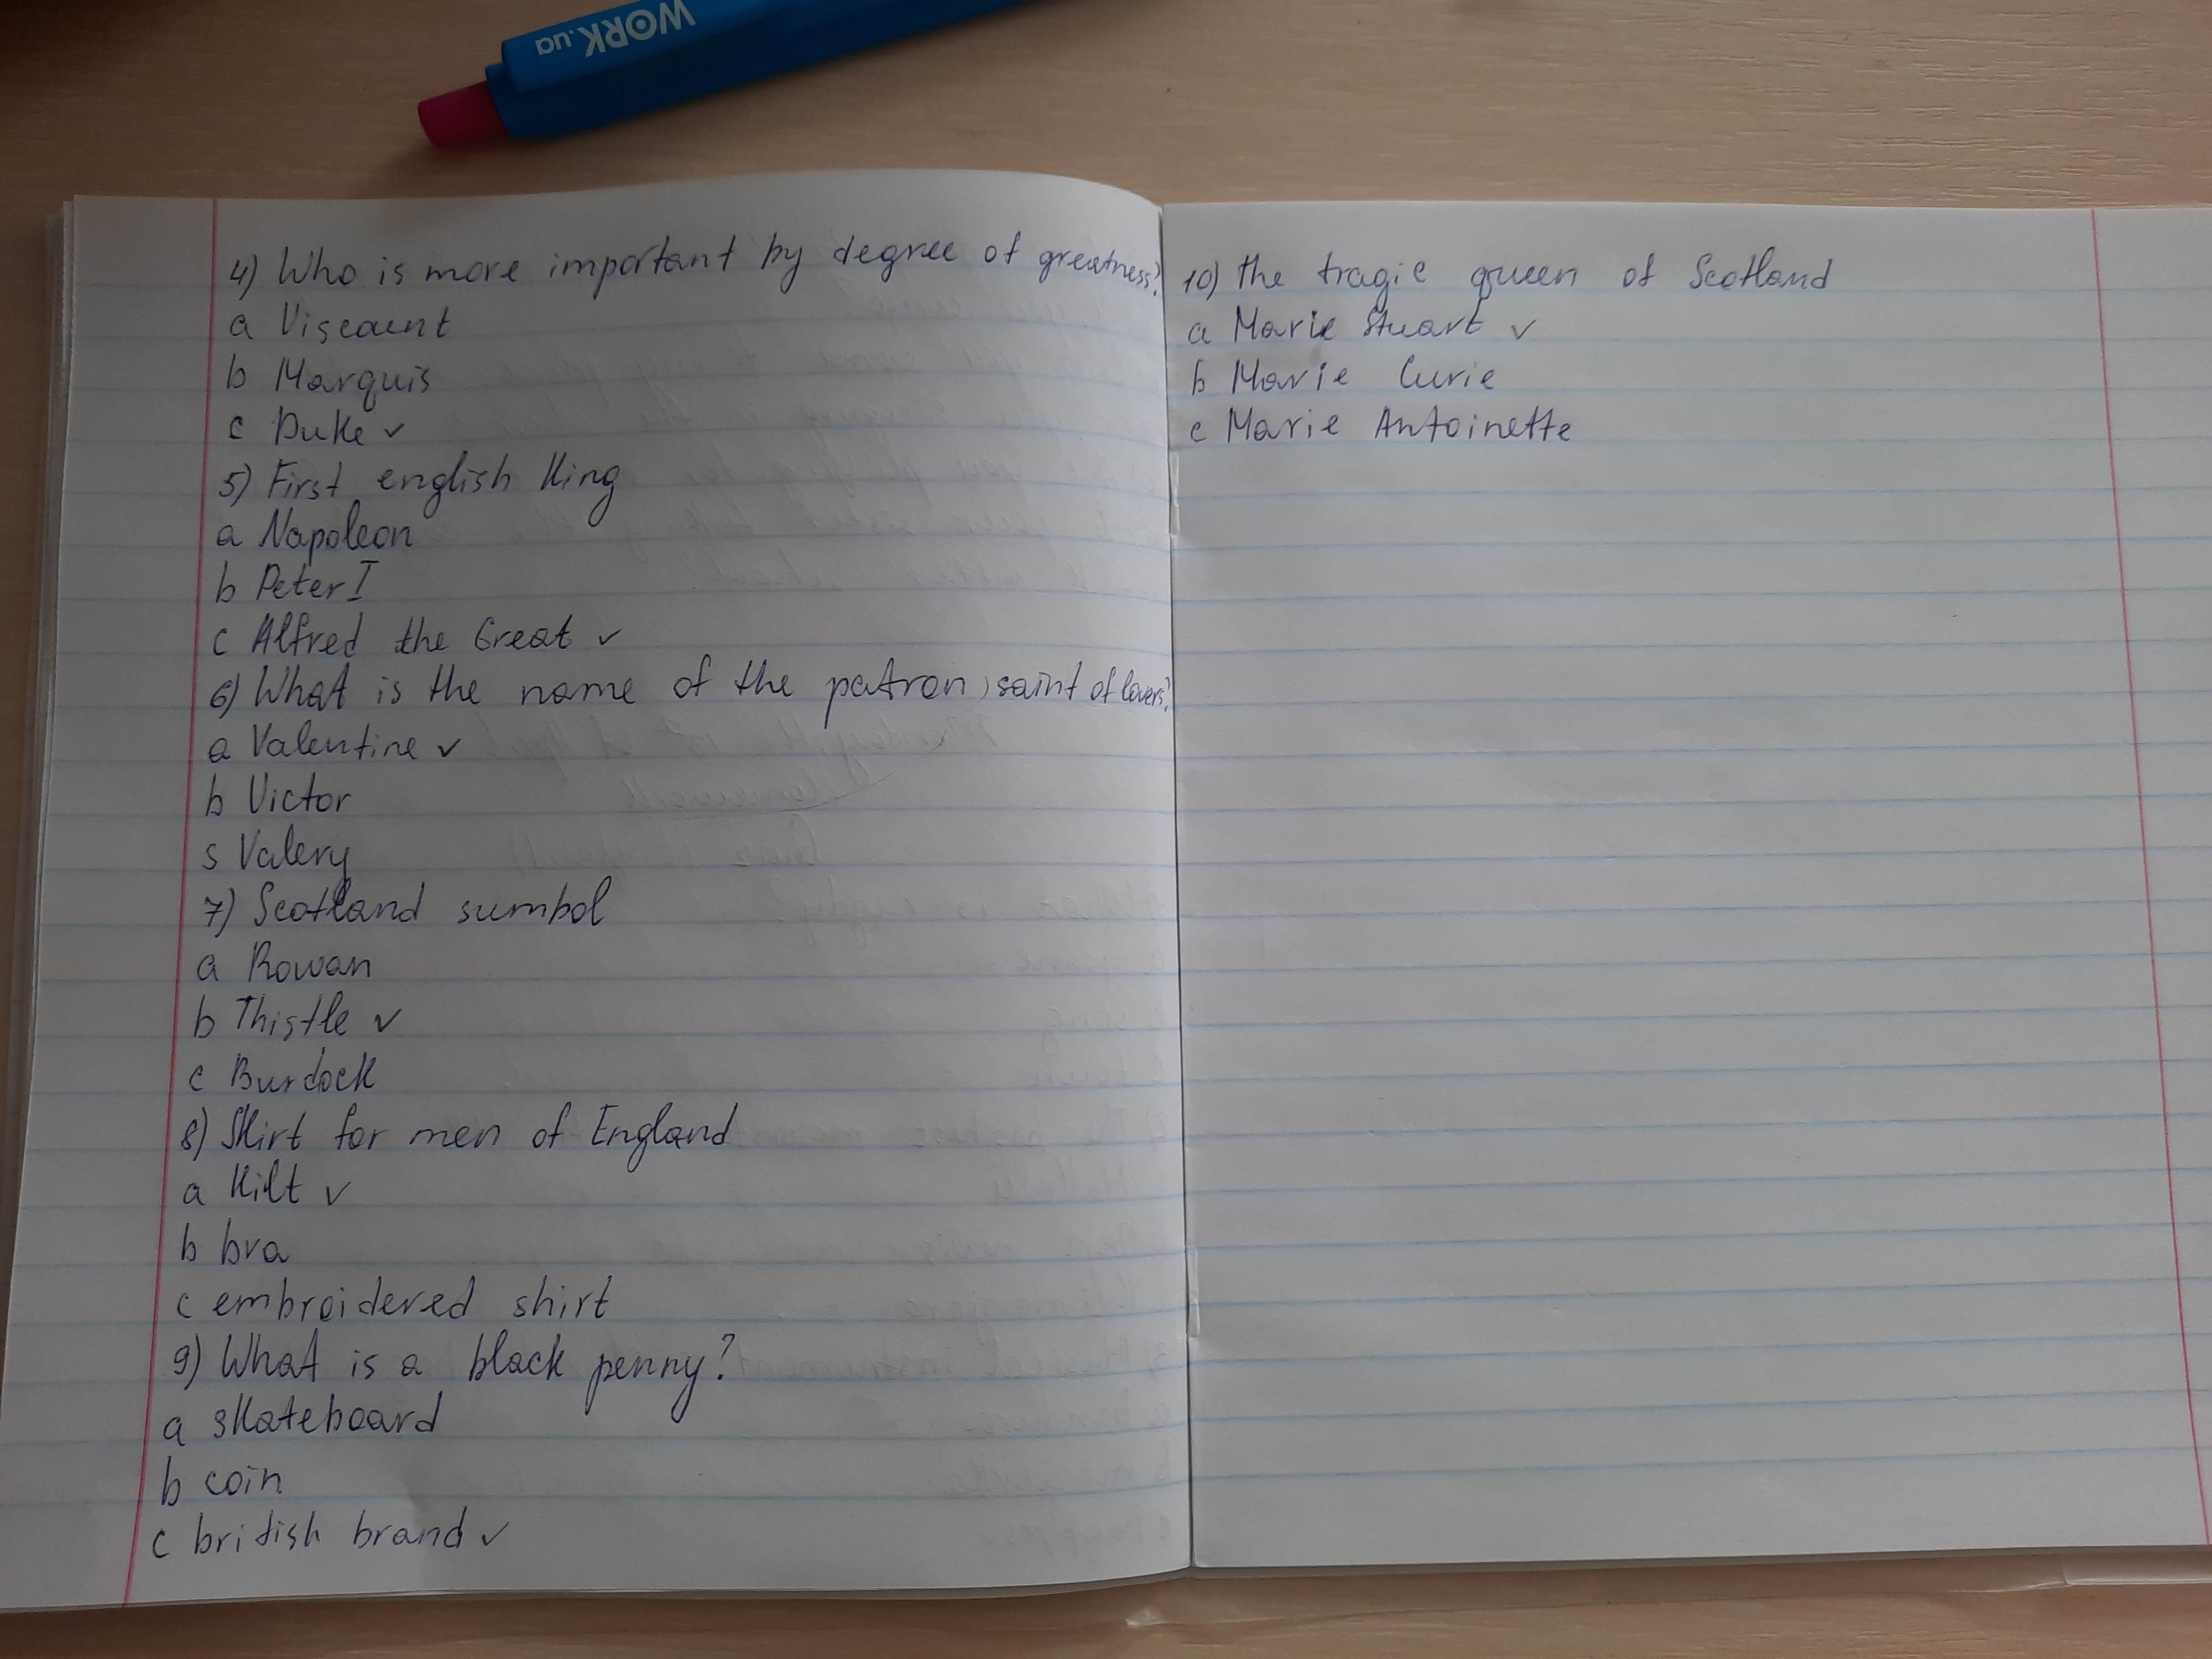 WORK.ua
4) Who is more important by degree of greatness?
a Viscaunt
b Marquis
c Duke ✓
5) First english King
a Napoleon
b Peter I
c Alfred the Great ✓
6) What is the name of the patron saint of lovers?
a Valentine ✓
b Victor
s Valery
7) Scotland sumbol
a Rowan
b Thistle ✓
c Burdock
8) Skirt for men of England
a Kilt ✓
b bra
c embroidered shirt
9) What is a black penny?
a skateboard
b coin
c british brand ✓
10) the tragic queen of Scotland
a Marie Stuart ✓
b Marie Curie
c Marie Antoinette